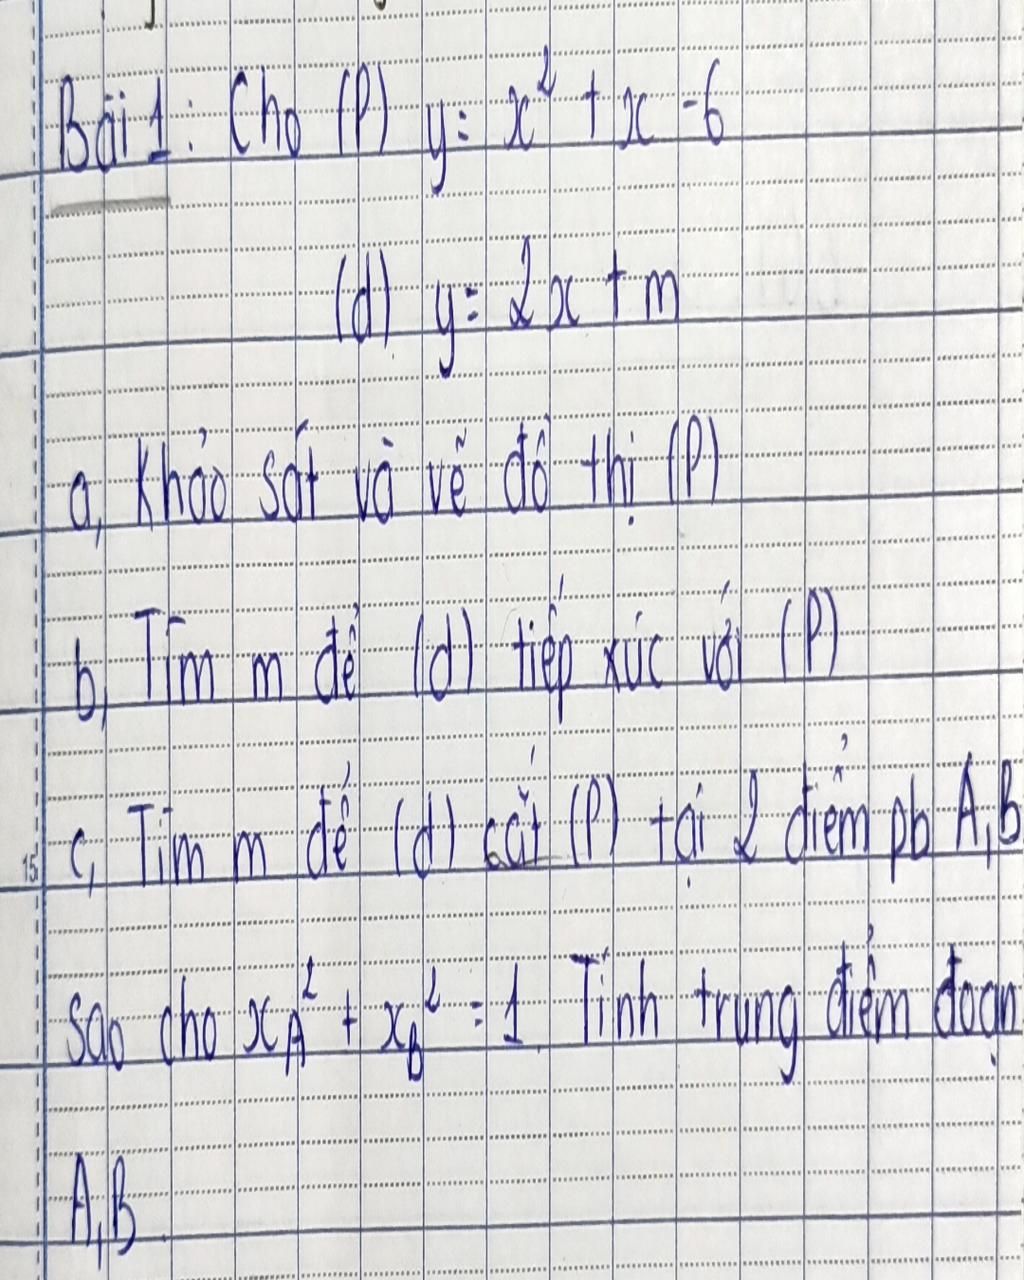 Bài 1: Cho (P) y = x² + x - 6
(d) y = 2x + m
a, Khảo sát và vẽ đồ thị (P)
b, Tìm m để (d) tiếp xúc với (P)
c, Tìm m để (d) cắt (P) tại 2 điểm pb A, B
15
sao cho x_A² + x_B² = 1. Tính trung điểm đoạn
A, B